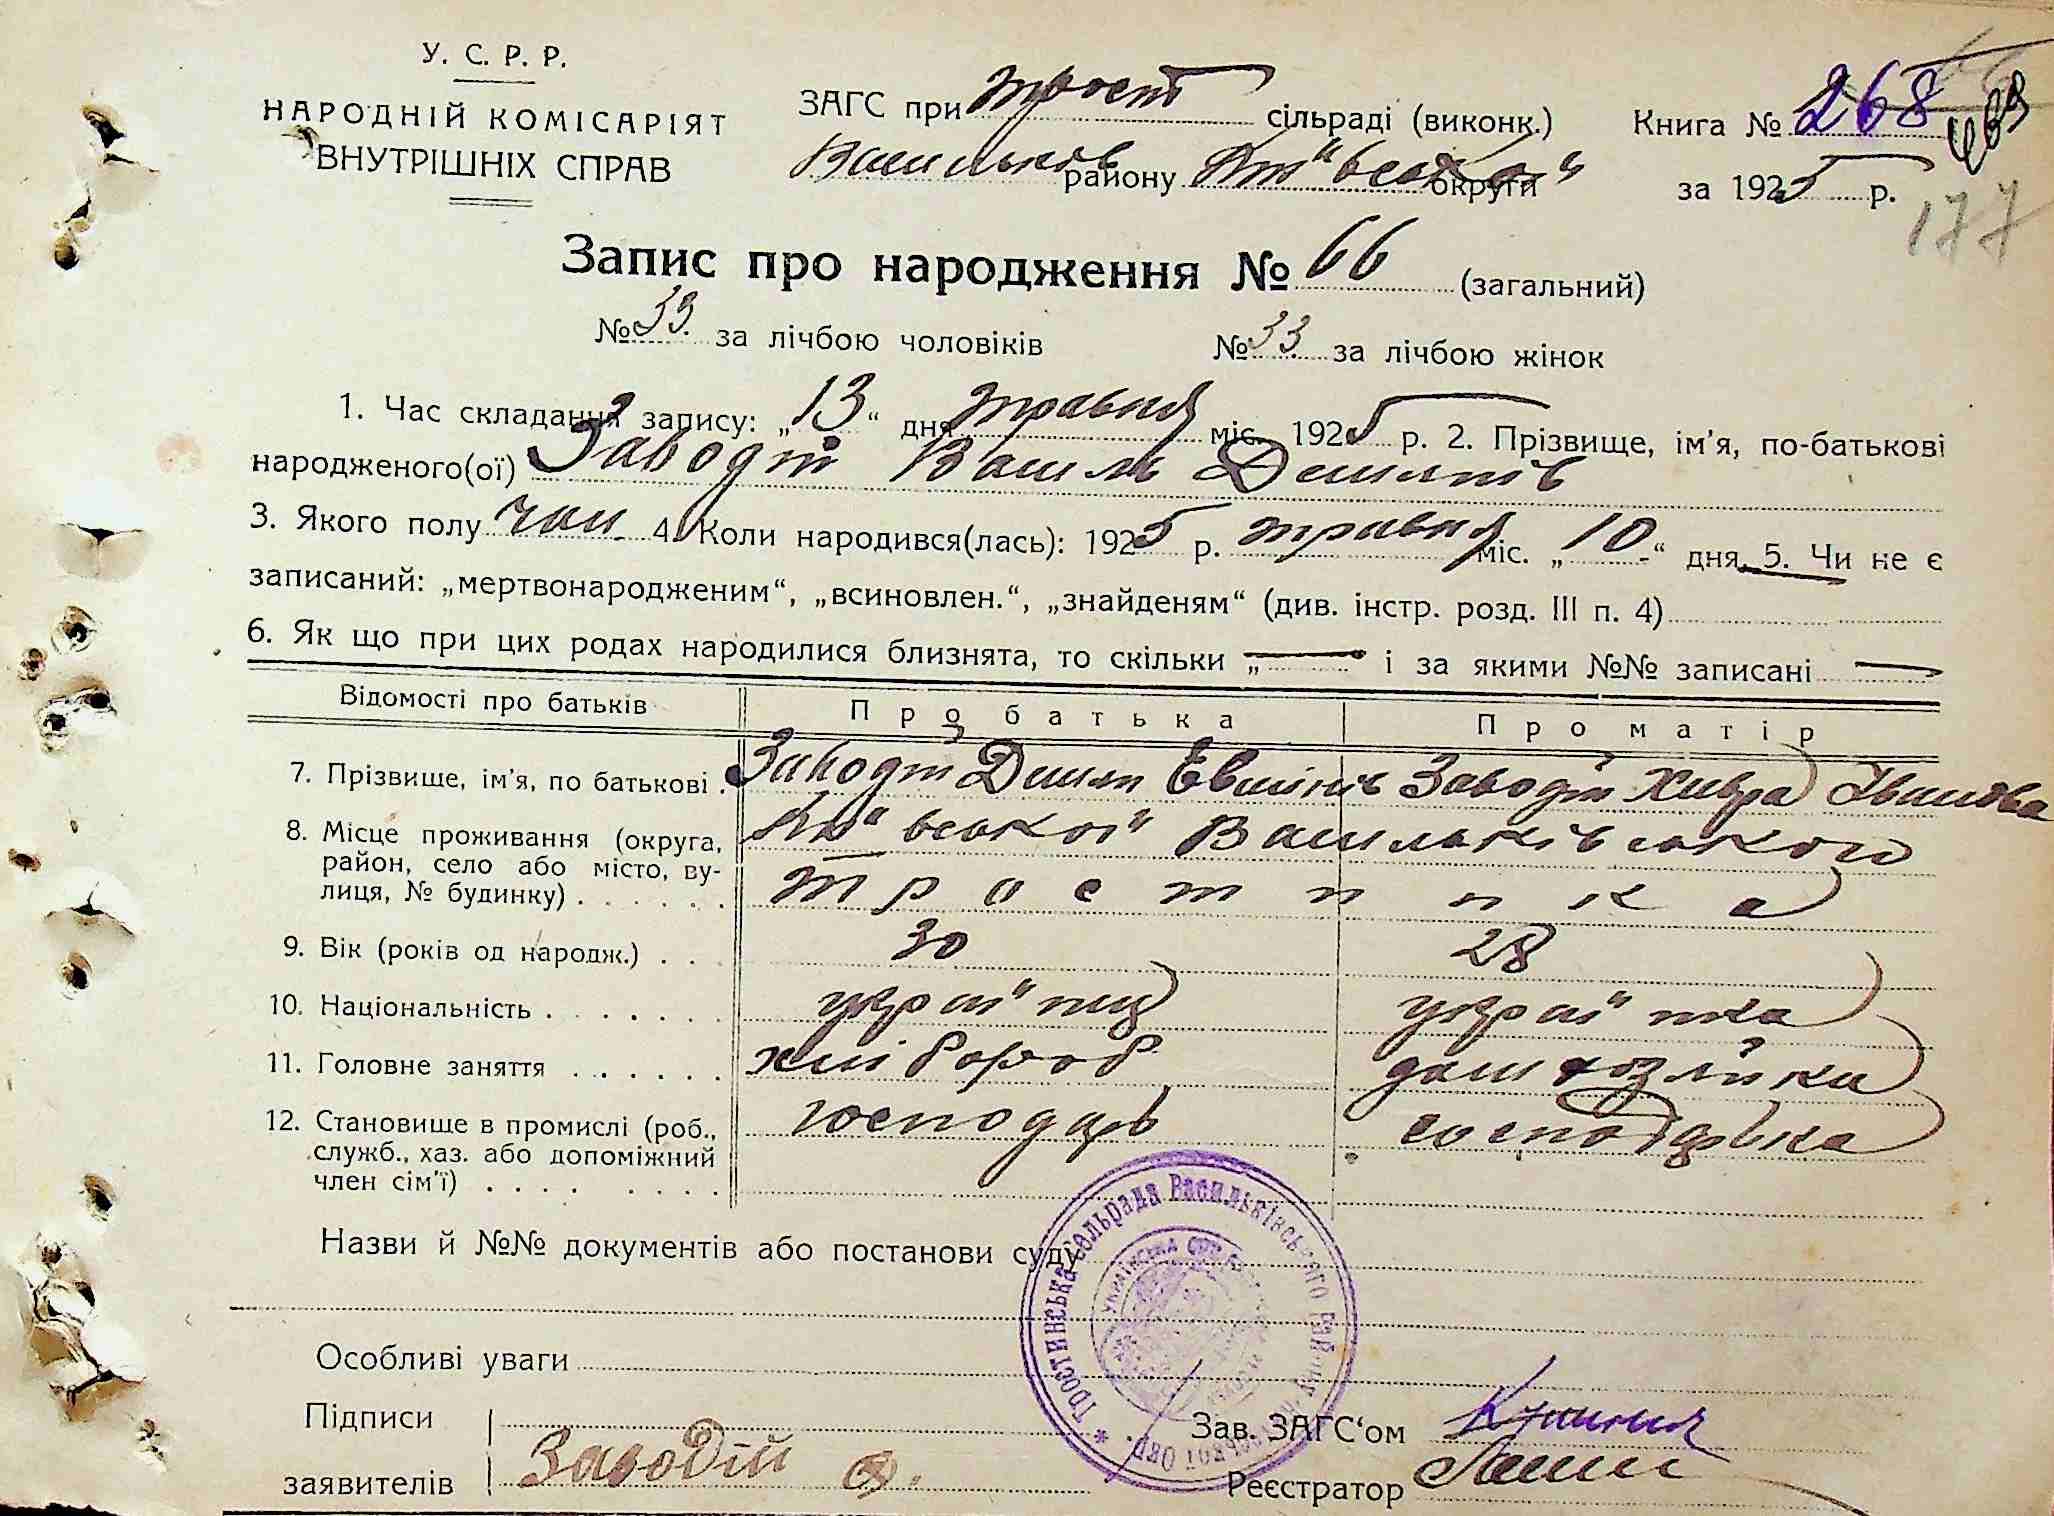 У. С. Р. Р.
НАРОДНІЙ КОМІСАРІЯТ
ВНУТРІШНІХ СПРАВ
ЗАГС при Трост сільраді (виконк.)
Васильків району Київської округи
Книга № 268
за 1925 р.
177
Запис про народження № 66 (загальний)
№ 33 за лічбою чоловіків № 33 за лічбою жінок
1. Час складання запису: „13“ дня травня міс. 1925 р. 2. Прізвище, ім'я, по-батькові
народженого(ої) Заводій Василь Демидів
3. Якого полу чол. 4. Коли народився(лась): 1925 р. травня міс. „10“ дня. 5. Чи не є
записаний: „мертвонародженим“, „всиновлен.“, „знайденям“ (див. інстр. розд. III п. 4)
6. Як що при цих родах народилися близнята, то скільки „ — і за якими №№ записані —
Відомості про батьків Про батька Про матір
7. Прізвище, ім'я, по батькові . Заводій Заводій Хивра Іванова
8. Місце проживання (округа, район, село або місто, вулиця, № будинку) . . . . . . Київської Васильківського
Тростинка
9. Вік (років од народж.) . . . 30 28
10. Національність . . . . . . . українц українка
11. Головне заняття . . . . . . хлібороб
12. Становище в промислі (роб., служб., хаз. або допоміжний член сім'ї) . . . . . . . . господарь господарька
Назви й №№ документів або постанови суду
Тростинська сельрада Васильківського району Київської окр.
УКРАЇНСЬКА
Особливі уваги
Підписи
заявителів Заводій
Зав. ЗАГС‘ом
Реєстратор